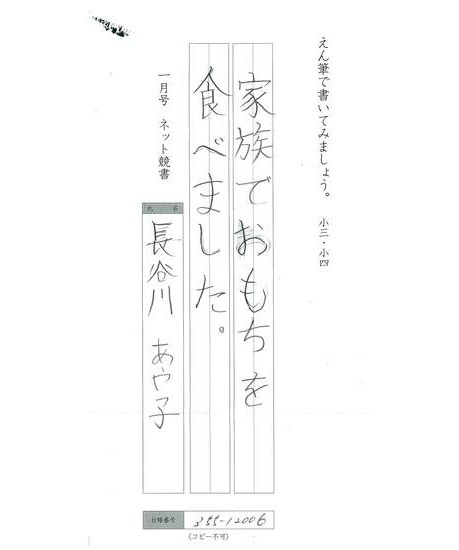 えん筆で書いてみましょう。 小三・小四
家族でおもちを
食べました。
一月号 ネット競書
氏 名
長谷川 あや子
台帳番号 355-12006
(コピー不可)